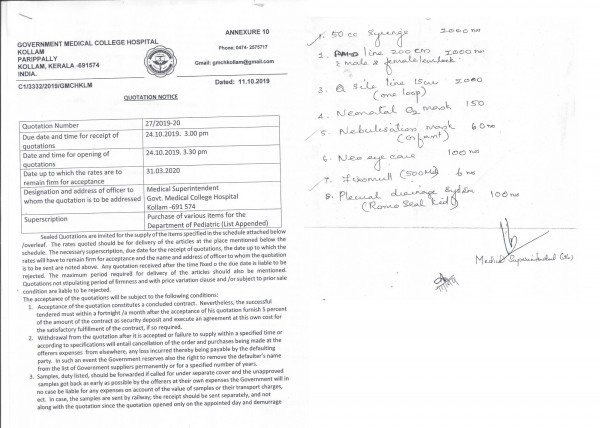 ANNEXURE 10
GOVERNMENT MEDICAL COLLEGE HOSPITAL
KOLLAM
PARIPPALLY
KOLLAM, KERALA -691574
INDIA.
Phone: 0474- 2575717
Gmail: gmchkollam@gmail.com
C1/3332/2019/GMCHKLM
Dated: 11.10.2019
QUOTATION NOTICE
Quotation Number 27/2019-20
Due date and time for receipt of quotations 24.10.2019. 3.00 pm
Date and time for opening of quotations 24.10.2019. 3.30 pm
Date up to which the rates are to remain firm for acceptance 31.03.2020
Designation and address of officer to whom the quotation is to be addressed Medical Superintendent
Govt. Medical College Hospital
Kollam -691 574
Superscription Purchase of various items for the
Department of Pediatric (List Appended)
Sealed Quotations are invited for the supply of the items specified in the schedule attached below
/overleaf. The rates quoted should be for delivery of the articles at the place mentioned below the
schedule. The necessary superscription, due date for the receipt of quotations, the date up to which the
rates will have to remain firm for acceptance and the name and address of officer to whom the quotation
is to be sent are noted above. Any quotation received after the time fixed o the due date is liable to be
rejected. The maximum period required for delivery of the articles should also be mentioned.
Quotations not stipulating period of firmness and with price variation clause and /or subject to prior sale
condition are liable to be rejected.
The acceptance of the quotations will be subject to the following conditions:
1. Acceptance of the quotation constitutes a concluded contract. Nevertheless, the successful
tendered must within a fortnight /a month after the acceptance of his quotation furnish 5 percent
of the amount of the contract as security deposit and execute an agreement at this own cost for
the satisfactory fulfillment of the contract, if so required.
2. Withdrawal from the quotation after it is accepted or failure to supply within a specified time or
according to specifications will entail cancellation of the order and purchases being made at the
offerers expenses from elsewhere, any loss incurred thereby being payable by the defaulting
party. In such an event the Government reserves also the right to remove the defaulter's name
from the list of Government suppliers permanently or for a specified number of years.
3. Samples, duty listed, should be forwarded if called for under separate cover and the unapproved
samples got back as early as possible by the offerers at their own expenses the Government will in
no case be liable for any expenses on account of the value of samples or their transport charges,
ect. In case, the samples are sent by railway; the receipt should be sent separately, and not
along with the quotation since the quotation opened only on the appointed day and demurrage
1. 50 cc Syringe 2000 nos
2. line 200 cm 2000 nos
& male & female luerlock
3. Q Site line 15cm 2000
(one loop)
4. Neonatal O2 mask 150
5. Nebulisation mask 60 nos
(infant)
6. Neo eye care 100 nos
7. (500ml) 6 nos
8. Pleural drainage system 100 nos
(Romo Seal Kid)
Medical Superintendent